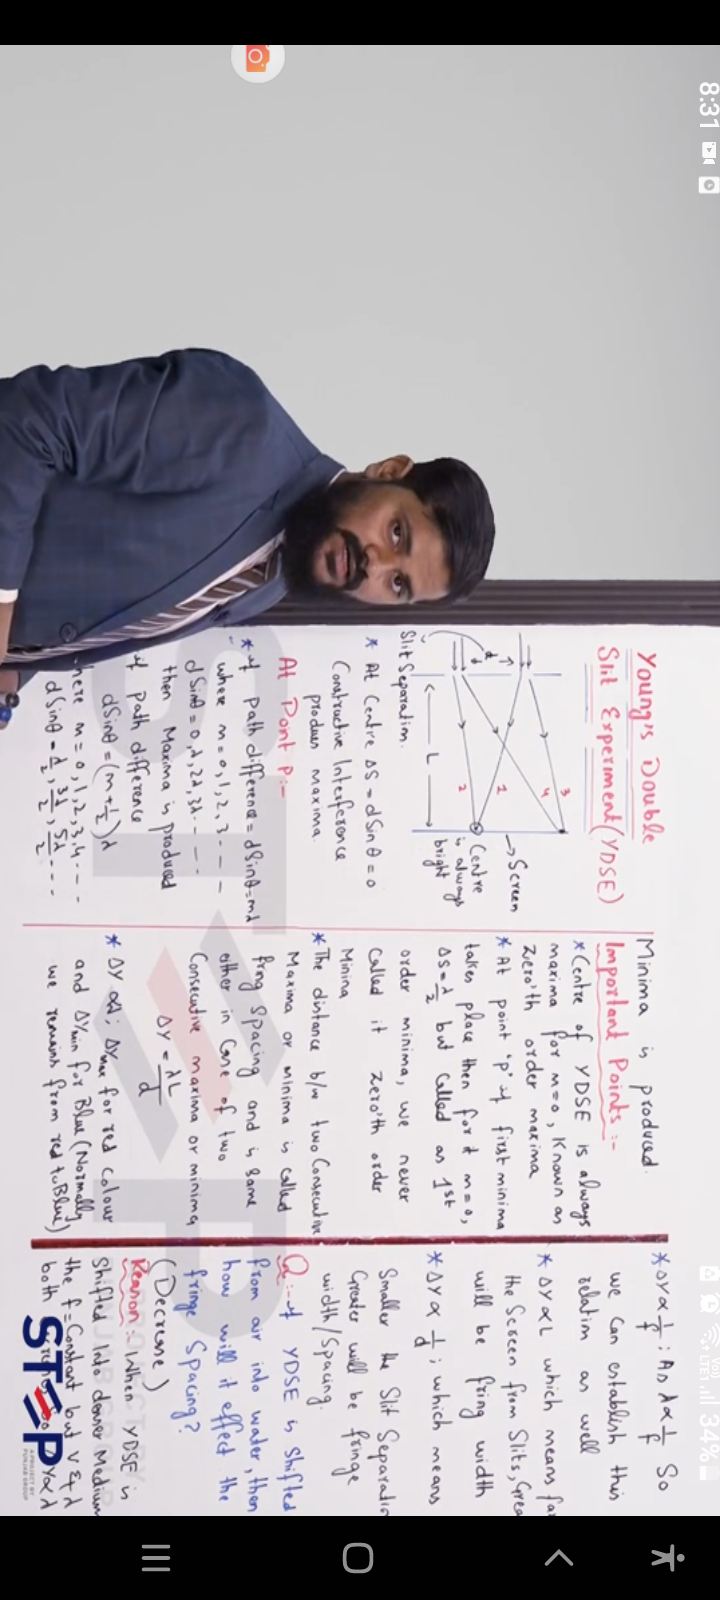 8:31
LTE1
34%
Young's Double
Slit Experiment (YDSE)
3
4
1
2
d
L
→ Screen
Centre
is always
bright
Slit Separation.
* At Centre ΔS = dSinθ = 0
Constructive Interference
produces maxima.
At Pont P:-
* if path difference = dSinθ = mλ
where m = 0, 1, 2, 3 - - - -
dSinθ = 0, λ, 2λ, 3λ - - - -
then Maxima is produced
if path difference
dSinθ = (m+1/2)λ
here m = 0, 1, 2, 3, 4 - - - -
dSinθ = λ/2, 3λ/2, 5λ/2 - - -
Minima is produced.
Important Points:-
* Centre of YDSE is always
maxima for m=0, Known as
zero'th order maxima
* At point 'p' if first minima
takes place then for it m=0,
ΔS = λ/2 but called as 1st
order minima, we never
called it zero'th order
Minima
* The distance b/w two Consecutive
Maxima or minima is called
fring spacing and is same
either in Case of two
Consecutive maxima or minima
ΔY = λL/d
* ΔY ∝ λ; ΔYmax for red colour
and ΔYmin for Blue (Normally
we remains from red to Blue)
* ΔY ∝ 1/f; As λ ∝ 1/f So
we can establish this
relation as well
* ΔY ∝ L which means far
the Screen from Slits, Grea
will be fring width
* ΔY ∝ 1/d; which means
Smaller the Slit Separatio
Greater will be fringe
width/Spacing.
Q:- if YDSE is shifted
from air into water, then
how will it effect the
fringe Spacing?
(Decrease)
Reason:- When YDSE is
shifted Into denser Medium
the f = Constant but v & λ
both
Y ∝ λ
STEP
A PROJECT BY
PUNJAB GROUP